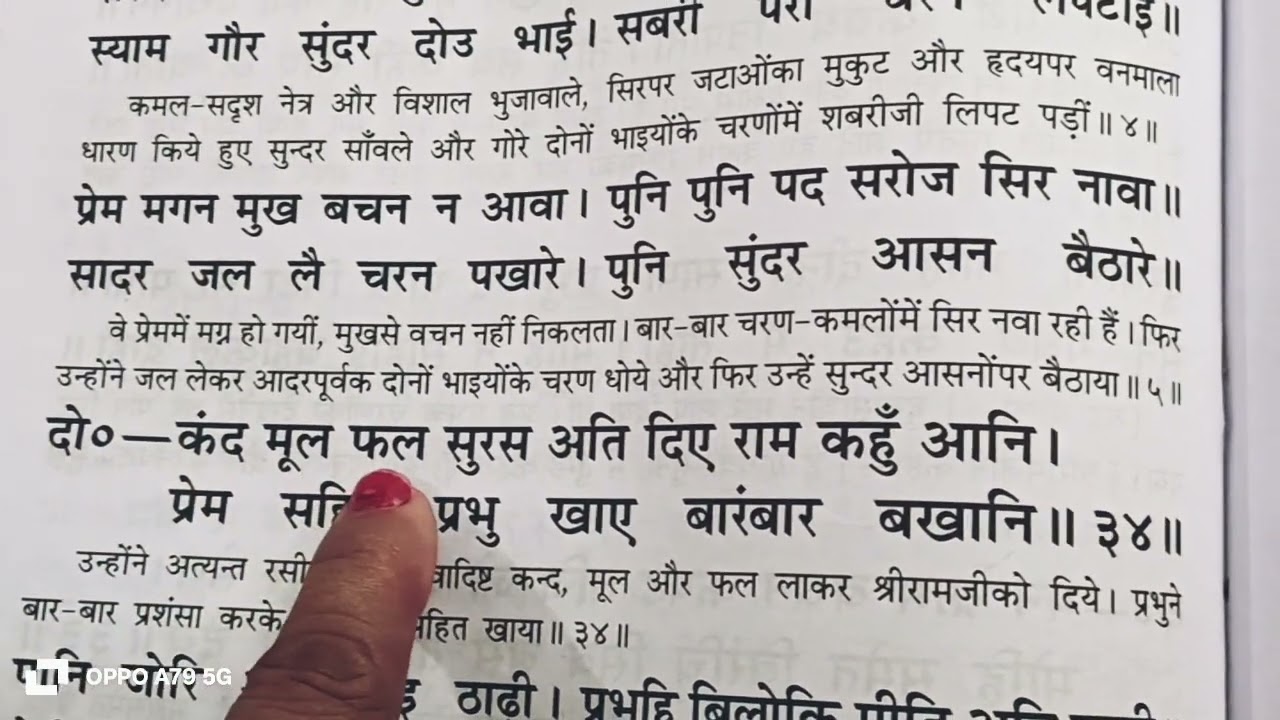 स्याम गौर सुंदर दोउ भाई। सबरी परी
कमल-सदृश नेत्र और विशाल भुजावाले, सिरपर जटाओंका मुकुट और हृदयपर वनमाला
धारण किये हुए सुन्दर साँवले और गोरे दोनों भाइयोंके चरणोंमें शबरीजी लिपट पड़ीं॥ ४॥
प्रेम मगन मुख बचन न आवा। पुनि पुनि पद सरोज सिर नावा॥
सादर जल लै चरन पखारे। पुनि सुंदर आसन बैठारे॥
वे प्रेममें मग्न हो गयीं, मुखसे वचन नहीं निकलता। बार-बार चरण-कमलोंमें सिर नवा रही हैं। फिर
उन्होंने जल लेकर आदरपूर्वक दोनों भाइयोंके चरण धोये और फिर उन्हें सुन्दर आसनोंपर बैठाया॥ ५॥
दो०—कंद मूल फल सुरस अति दिए राम कहुँ आनि।
प्रेम प्रभु खाए बारंबार बखानि॥ ३४॥
उन्होंने अत्यन्त कन्द, मूल और फल लाकर श्रीरामजीको दिये। प्रभुने
बार-बार प्रशंसा करके खाया॥ ३४॥
पानि जोरि ठाढ़ी। प्रभुहि बिलोकि प्रीति अति
OPPO A79 5G